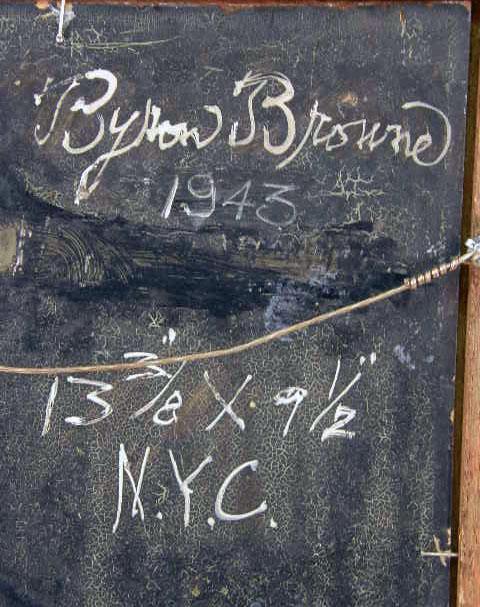 Byron Browne
1943
13 3/8" X 9 1/2"
N.Y.C.